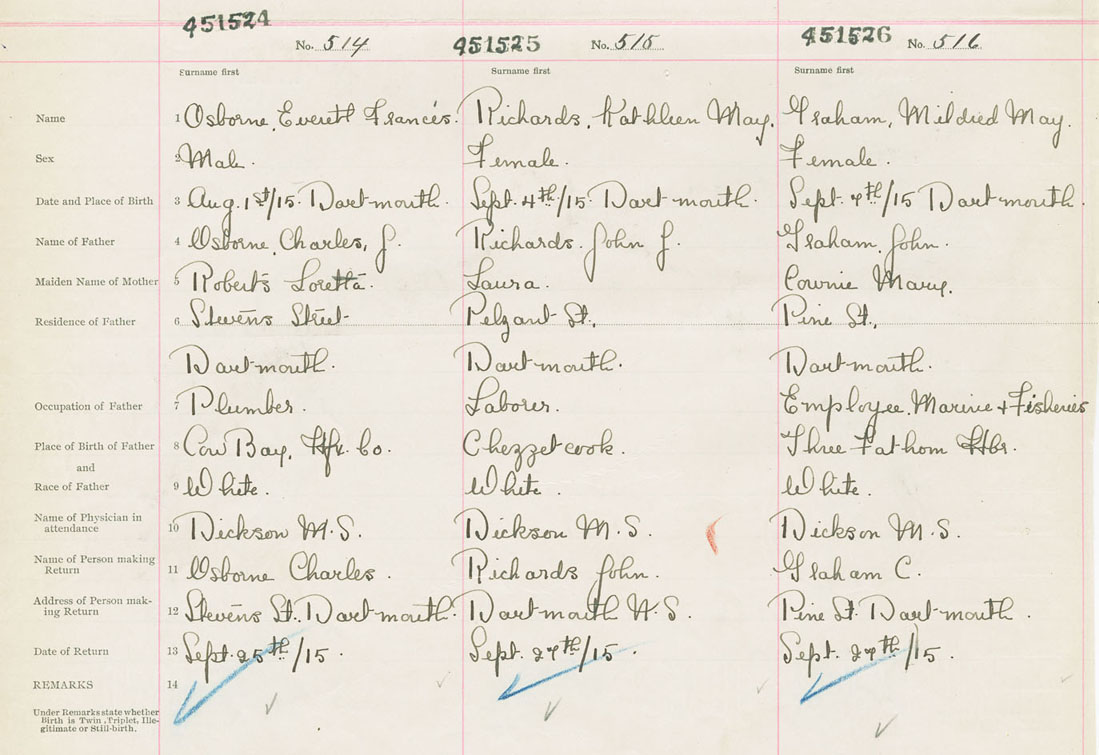 451524 No. 514 451525 No. 515 451526 No. 516
Surname first Surname first Surname first
Name 1 Osborne, Everett Francis. Richards, Kathleen May. Graham, Mildred May.
Sex 2 Male. Female. Female.
Date and Place of Birth 3 Aug. 1st/15. Dartmouth. Sept. 4th/15. Dartmouth. Sept. 7th/15 Dartmouth.
Name of Father 4 Osborne, Charles, J. Richards. John J. Graham, John.
Maiden Name of Mother 5 Roberts Loretta. Laura. Cownie Mary.
Residence of Father 6 Stevens Street Pelzant St., Pine St.,
Dartmouth. Dartmouth. Dartmouth.
Occupation of Father 7 Plumber. Laborer. Employee. Marine + Fisheries
Place of Birth of Father 8 Cow Bay, Hfx. Co. Chezzetcook. Three Fathom Hbr.
and
Race of Father 9 White. White. White.
Name of Physician in
attendance 10 Dickson M.S. Dickson M.S. Dickson M.S.
Name of Person making
Return 11 Osborne Charles. Richards John. Graham C.
Address of Person mak-
ing Return 12 Stevens St. Dartmouth. Dartmouth N.S. Pine St. Dartmouth.
Date of Return 13 Sept. 25th/15. Sept. 27th/15. Sept. 27th/15.
REMARKS 14
Under Remarks state whether
Birth is Twin, Triplet, Ille-
gitimate or Still-birth.